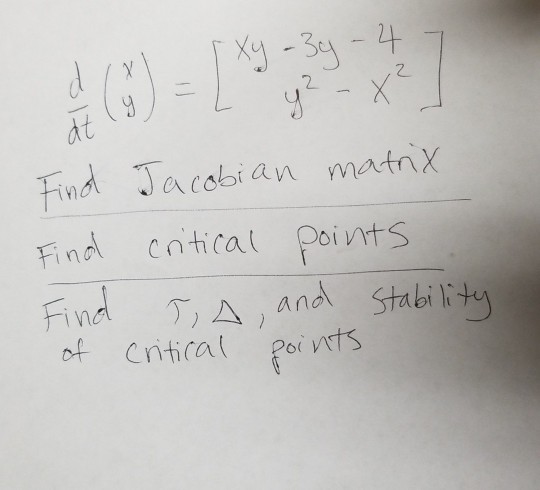 d/dt (x y) = [ xy - 3y - 4
y² - x² ]
Find Jacobian matrix
Find critical points
Find τ, Δ, and stability
of critical points